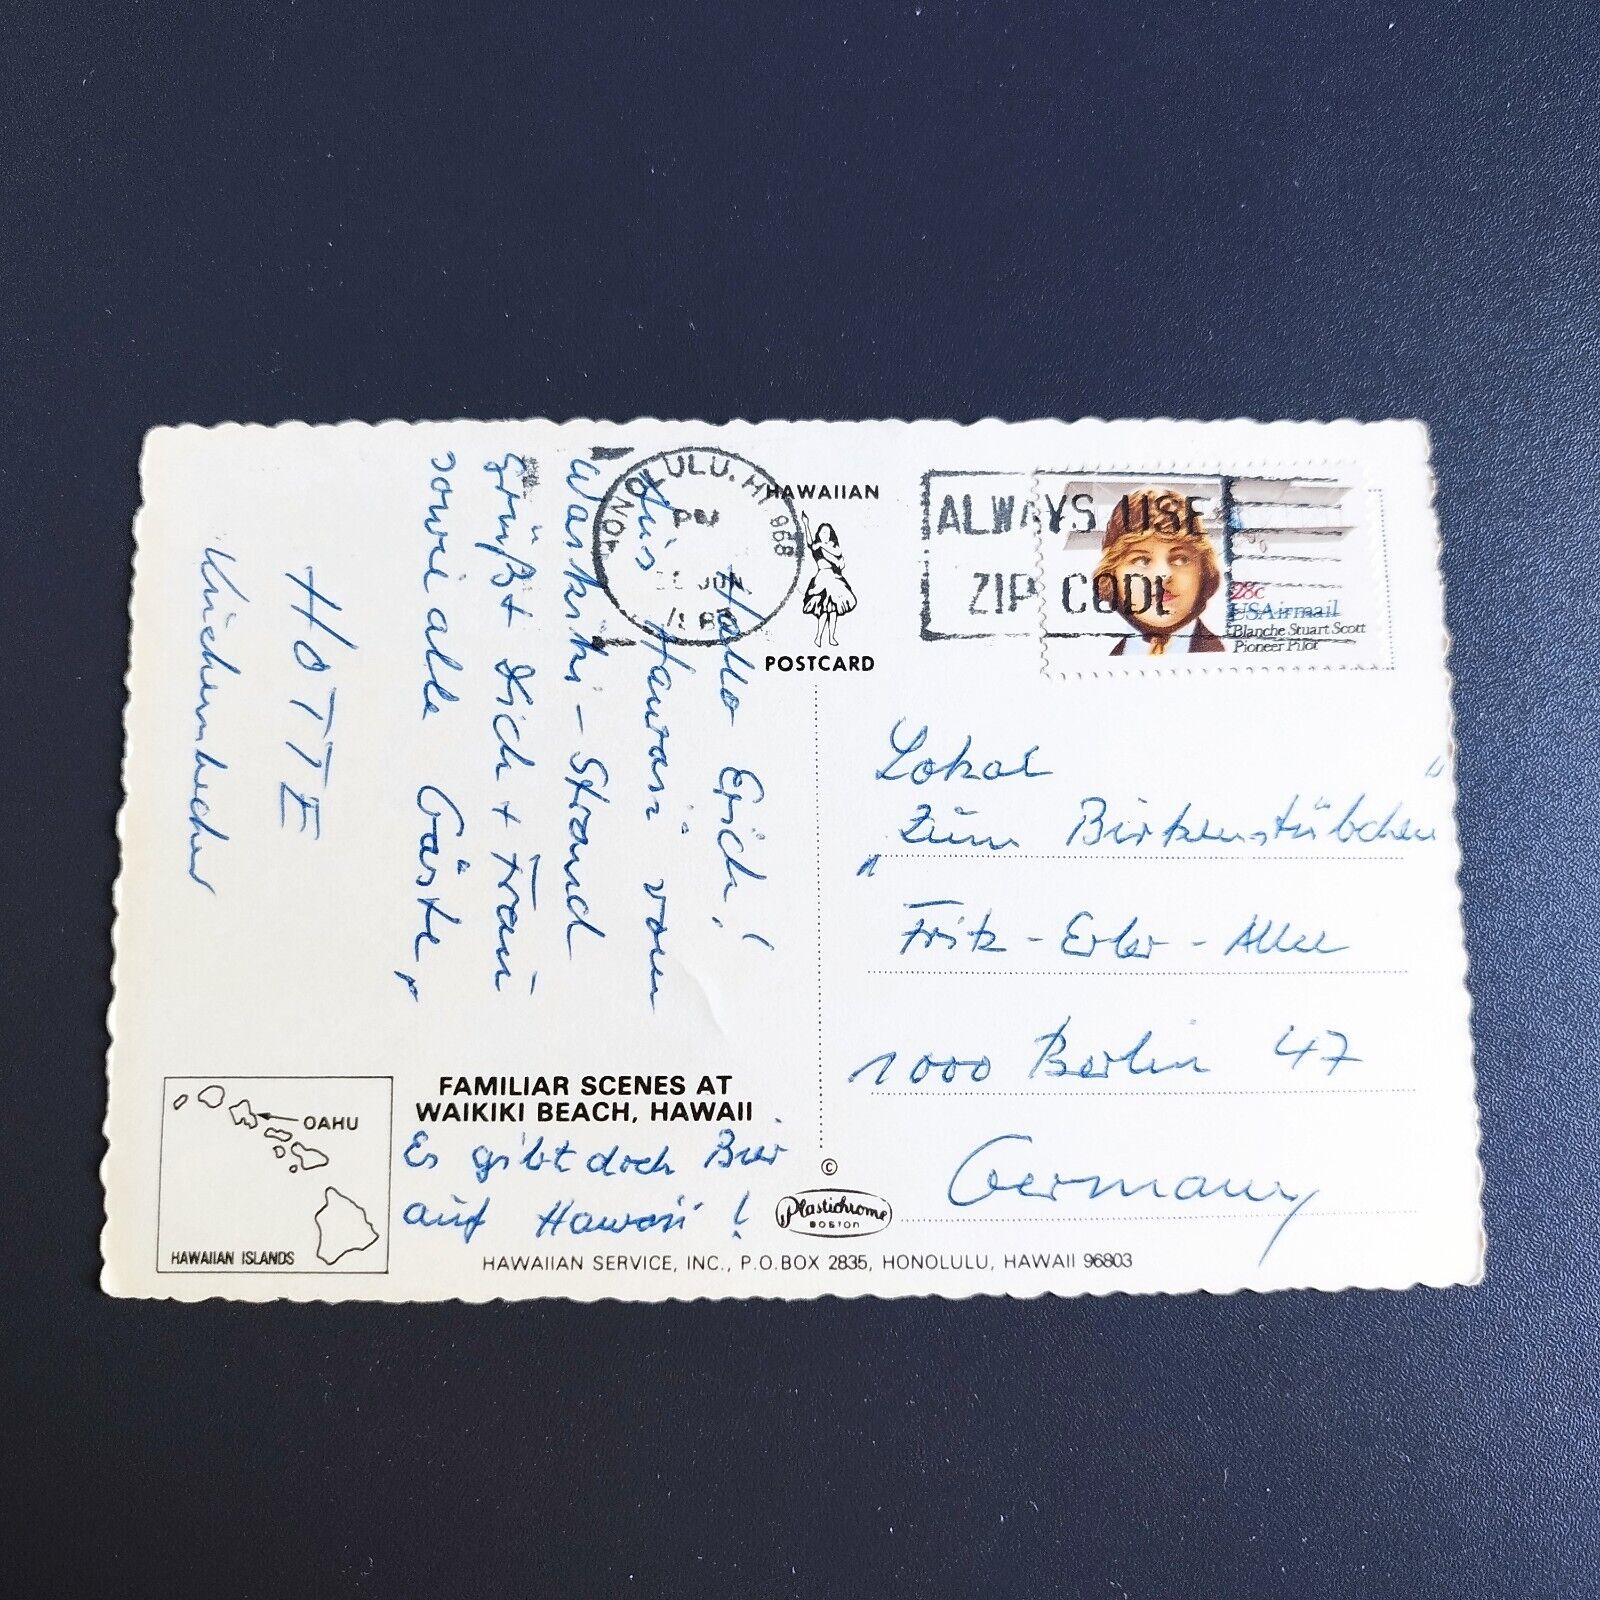 Hallo Erich!
Aus Hawaii vom
Waikiki-Strand
grüßt Dich + Frau
sowie alle Gäste,
HOTTE
HONOLULU, HI 968
PM
JUN
HAWAIIAN
POSTCARD
ALWAYS USE
ZIP CODE
28c
USAirmail
Blanche Stuart Scott
Pioneer Pilot
Lokal
„Zum Birkenstübchen"
Fritz-Erler-Allee
1000 Berlin 47
Germany
OAHU
HAWAIIAN ISLANDS
FAMILIAR SCENES AT
WAIKIKI BEACH, HAWAII
Es gibt doch Bier
auf Hawaii!
©
Plastichrome
BOSTON
HAWAIIAN SERVICE, INC., P.O.BOX 2835, HONOLULU, HAWAII 96803